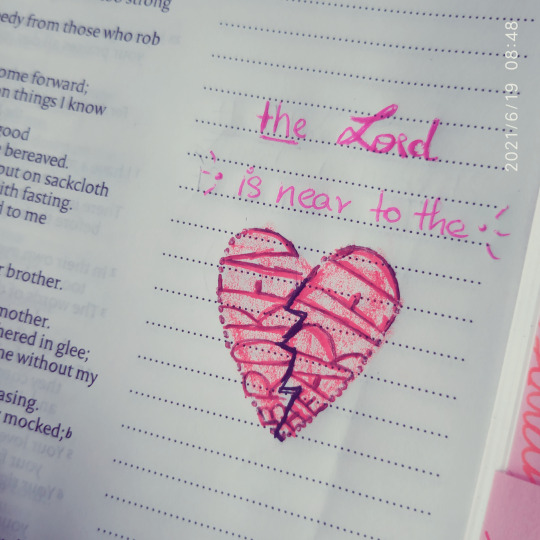 so strong
edy from those who rob
ome forward;
n things I know
good
bereaved.
out on sackcloth
ith fasting.
d to me
r brother.
mother.
hered in glee;
ne without my
asing.
mocked;b
the Lord
is near to the
BROKEN HEART
2021/6/19 08:48